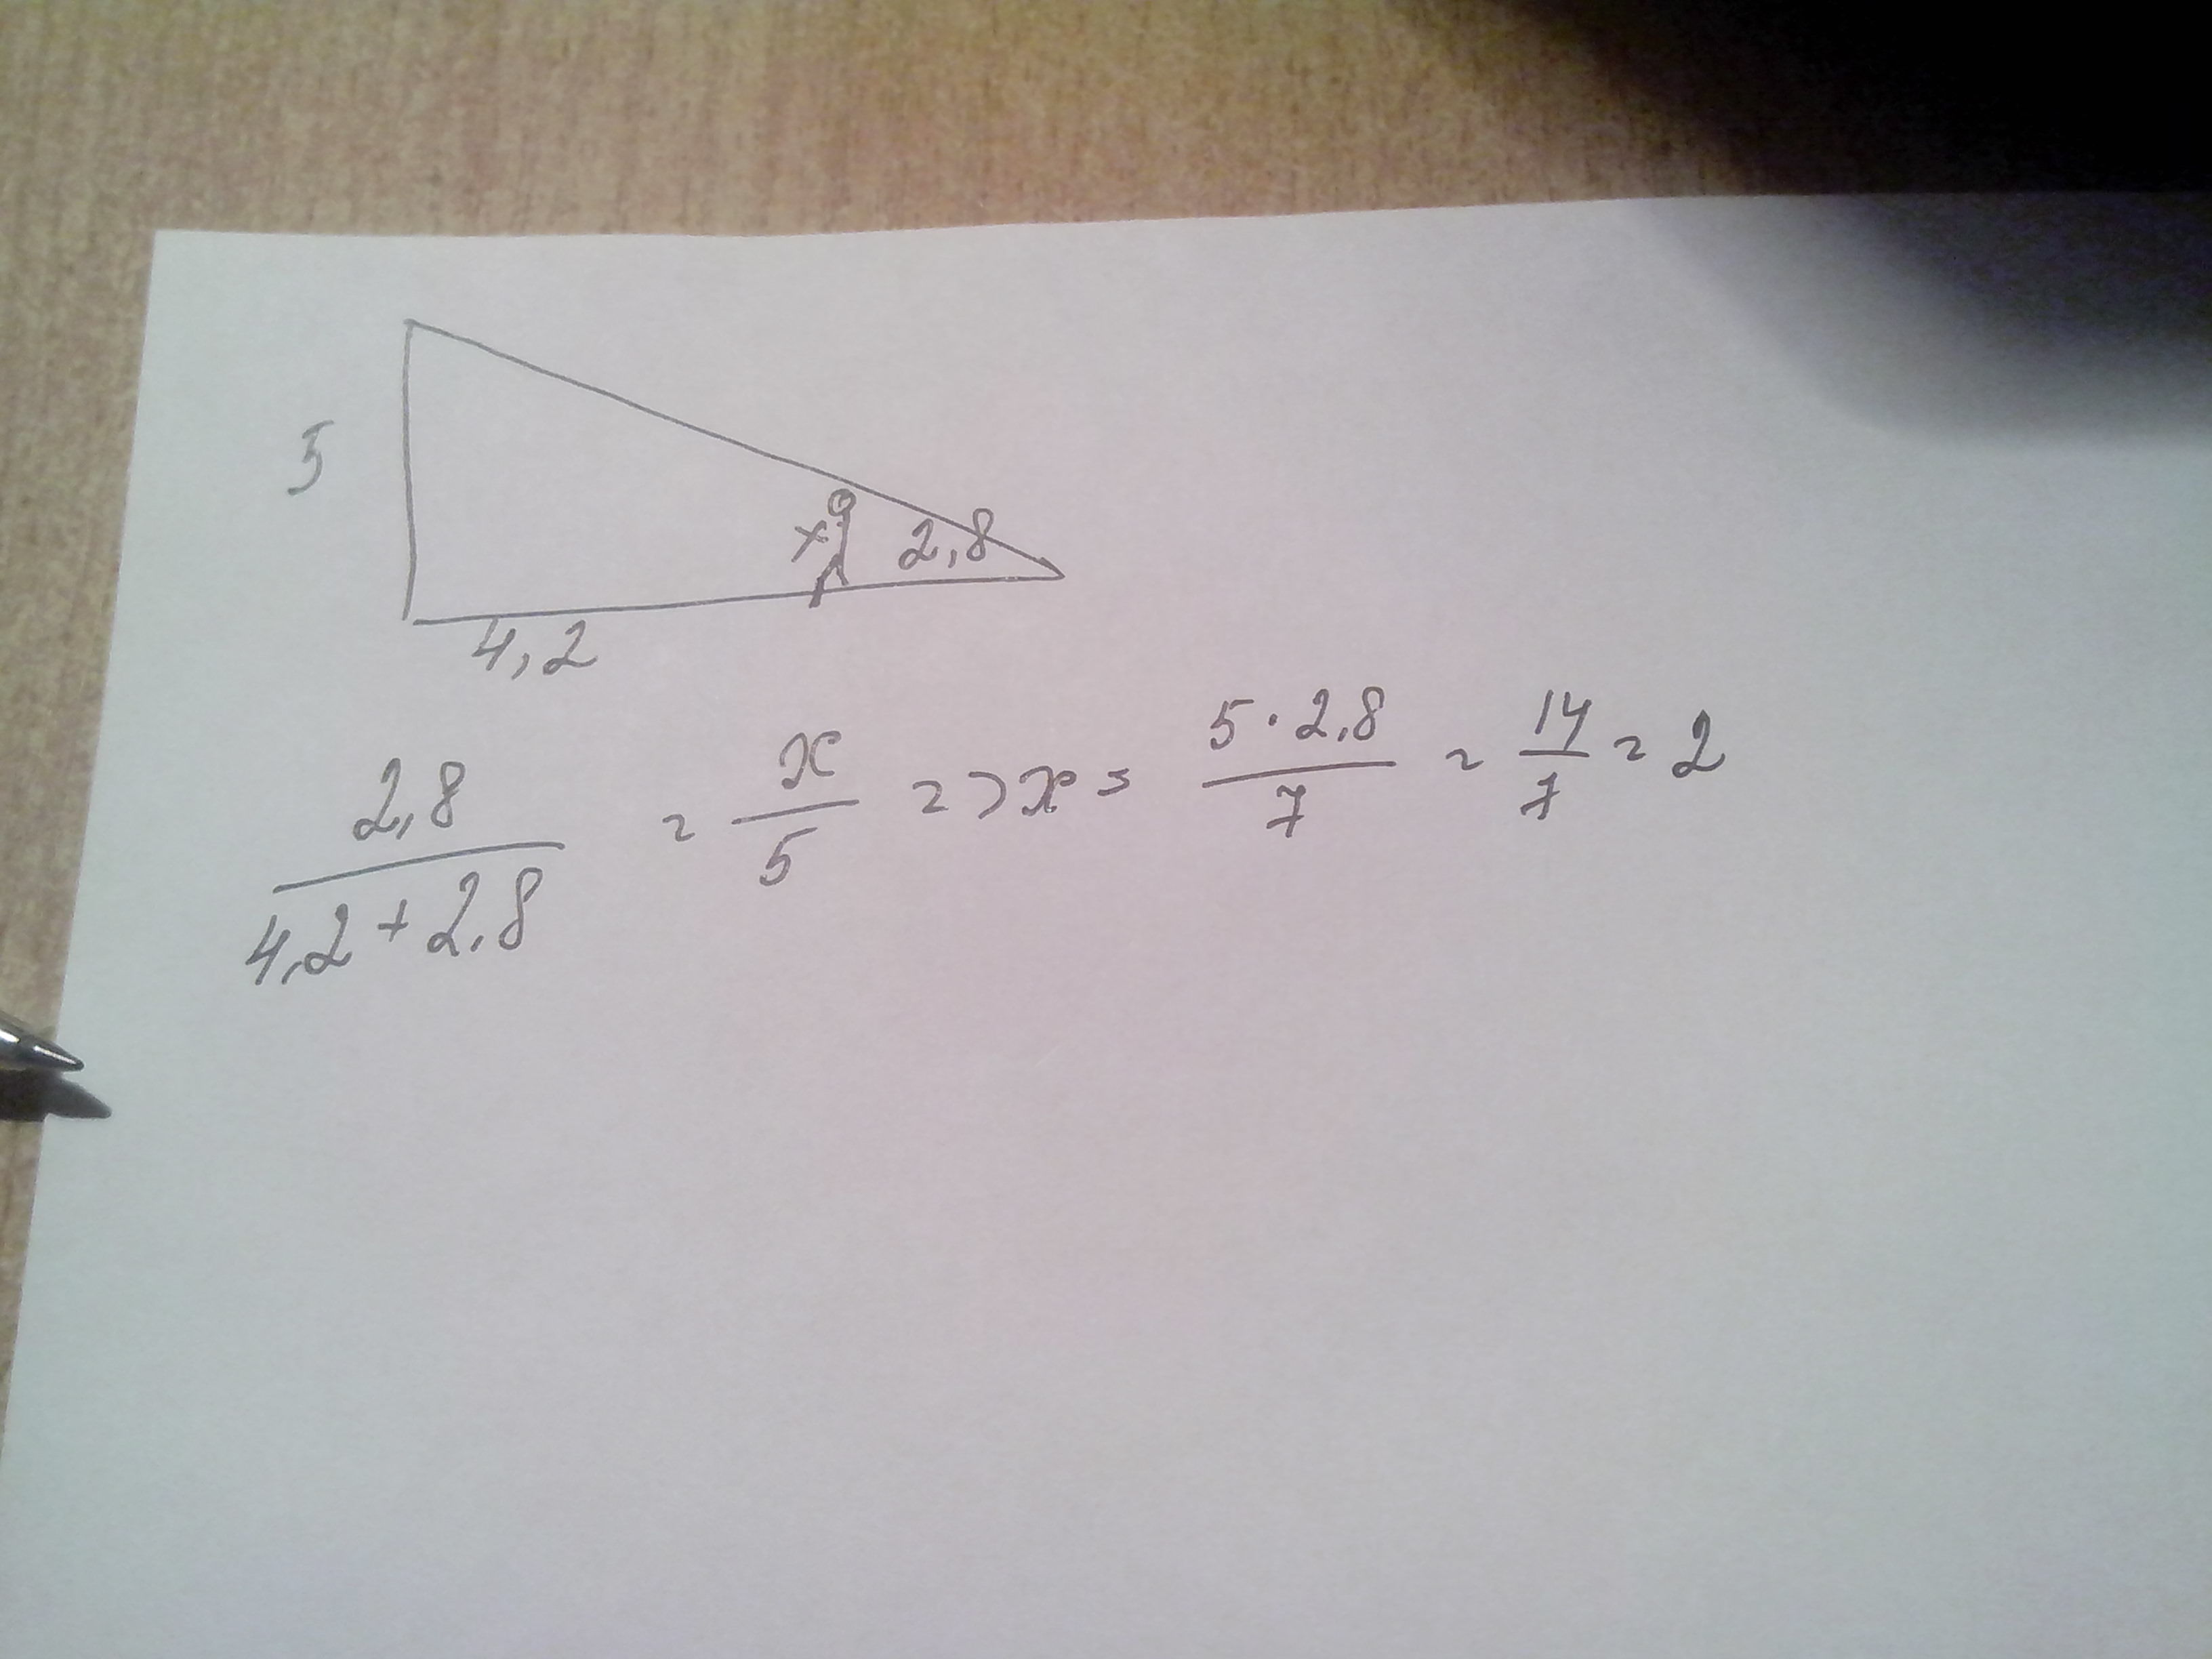 5
x
2,8
4,2
2,8 / 4,2 + 2,8 = x / 5 => x = 5 · 2,8 / 7 = 14 / 7 = 2